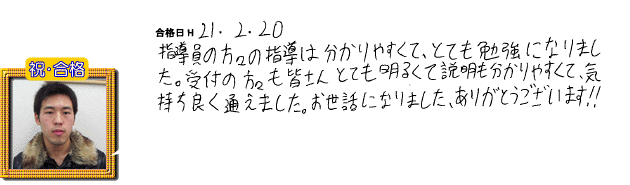 合格日H 21. 2. 20
指導員の方々の指導は分かりやすくて、とても勉強になりまし
た。受付の方々も皆さんとても明るくて説明も分かりやすくて、気
持ち良く通えました。お世話になりました、ありがとうございます!!
祝・合格